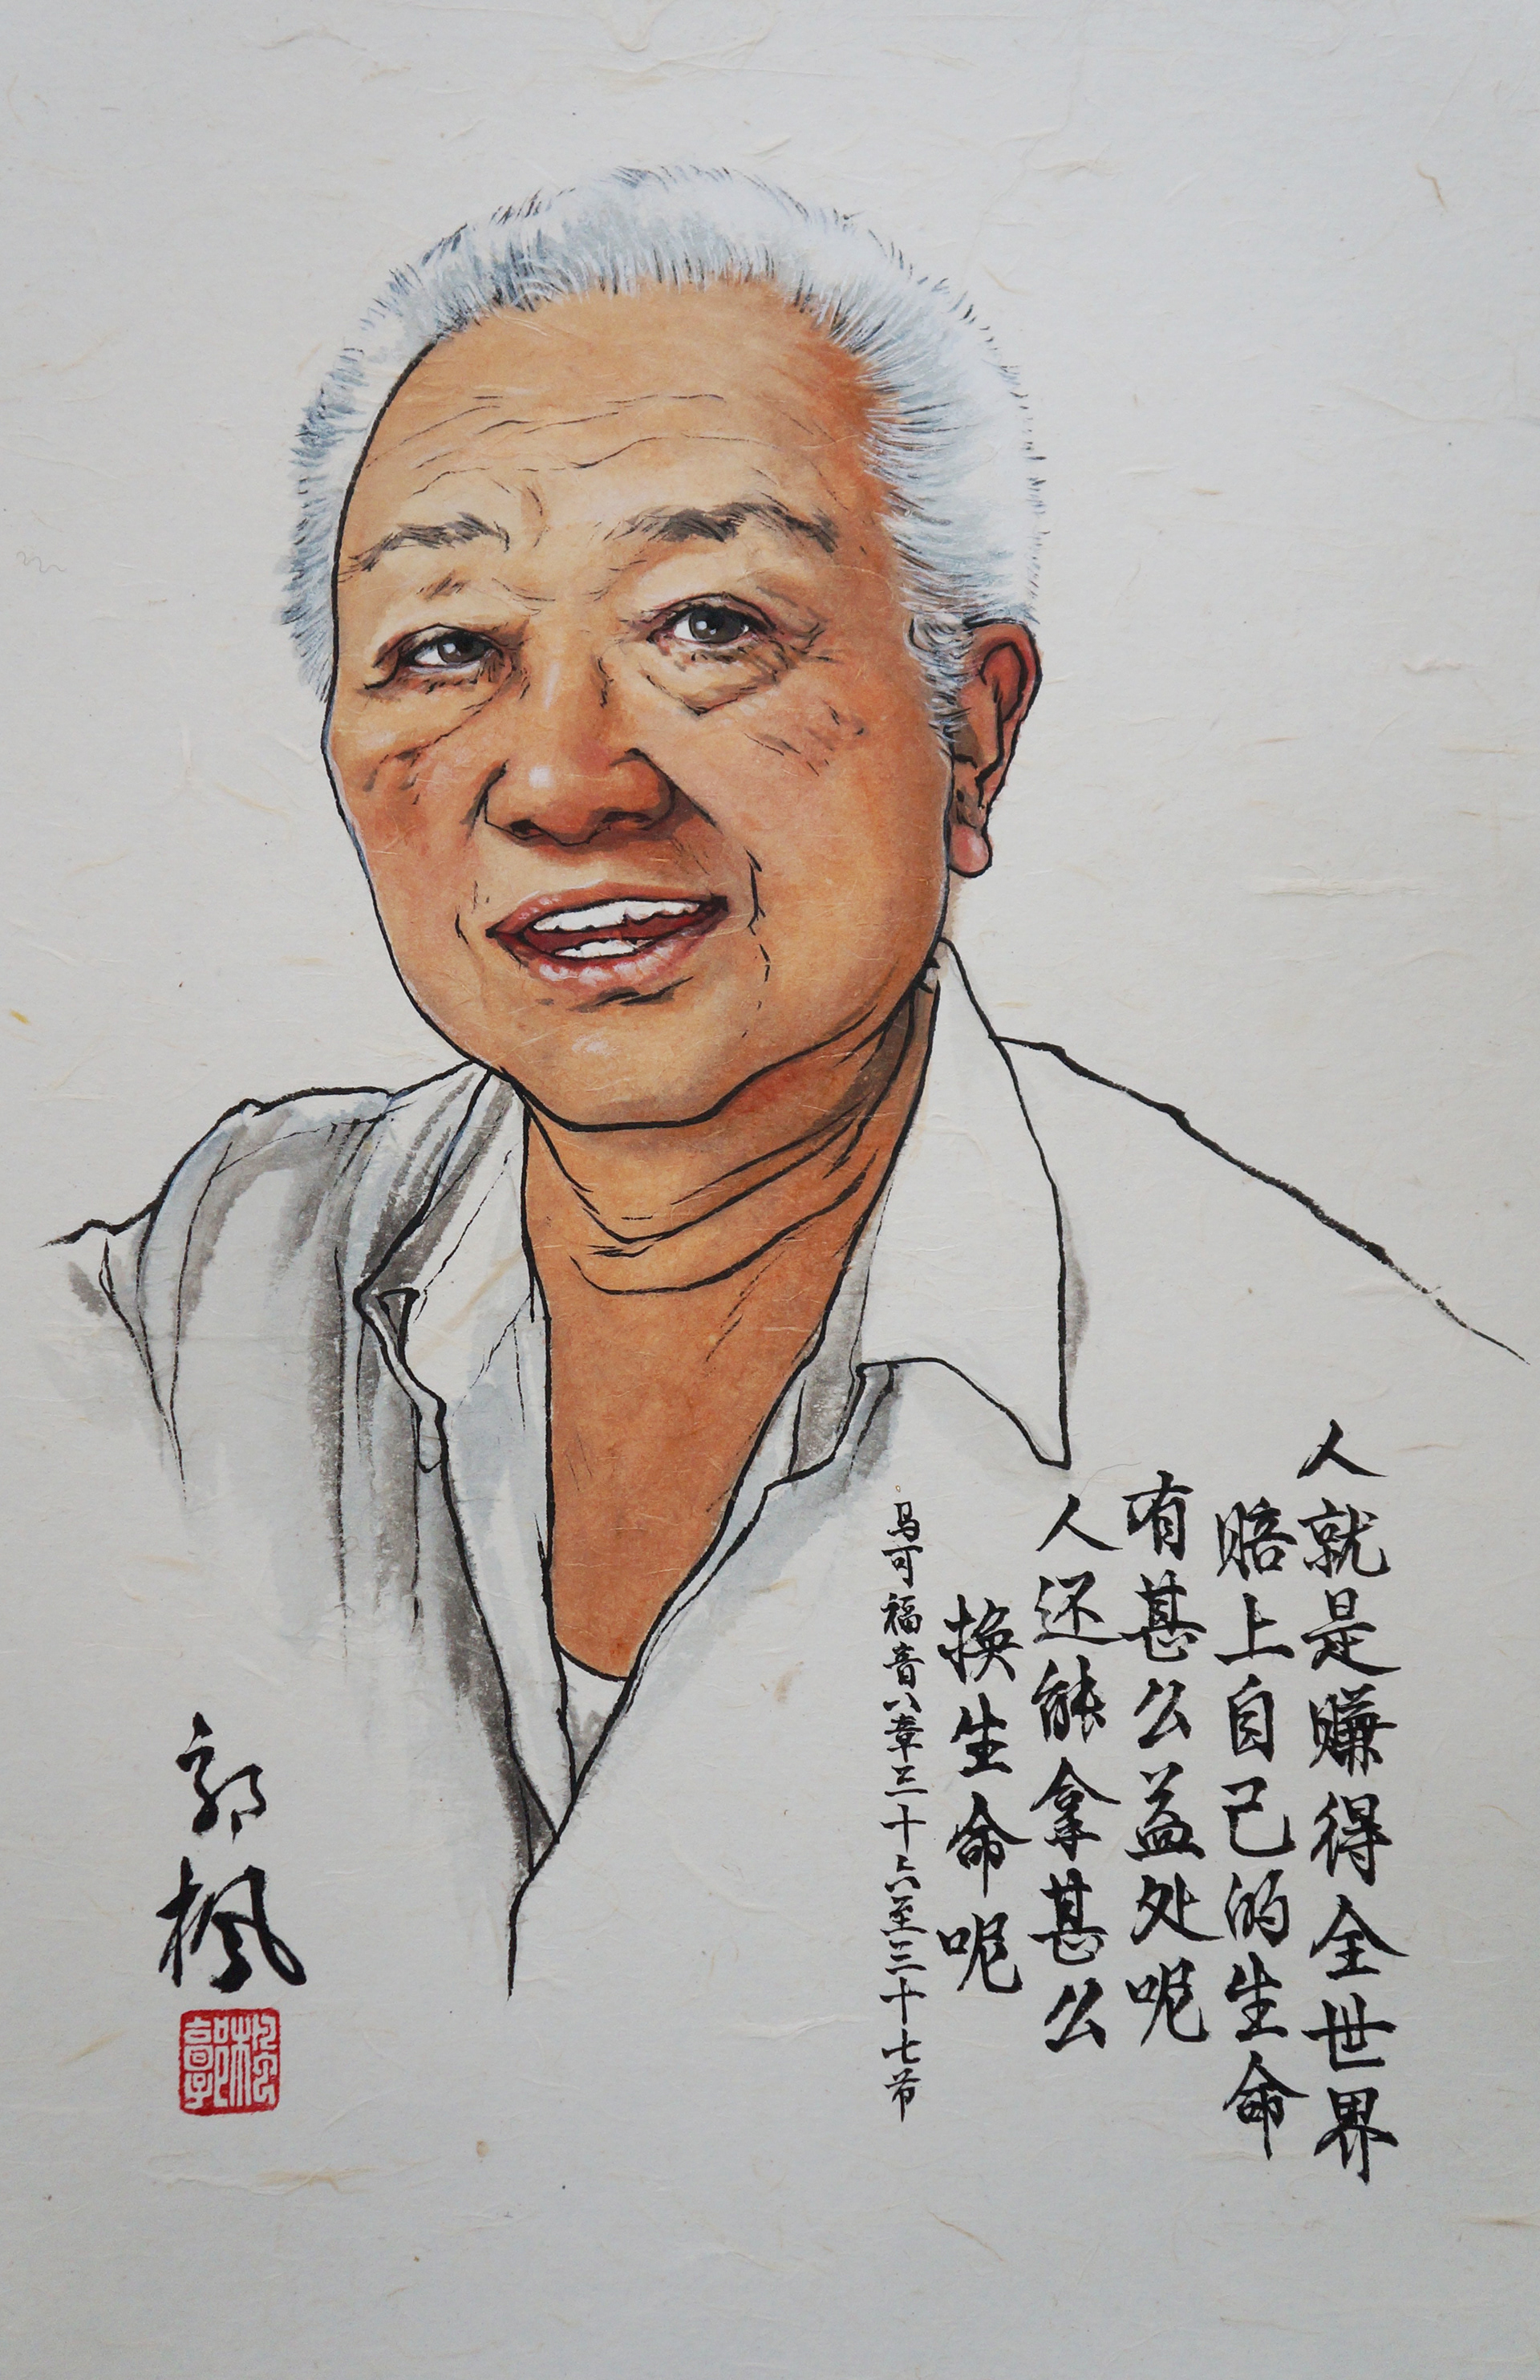 人就是赚得全世界
赔上自己的生命
有甚么益处呢
人还能拿甚么
换生命呢
马可福音八章三十六至三十七节
郭枫